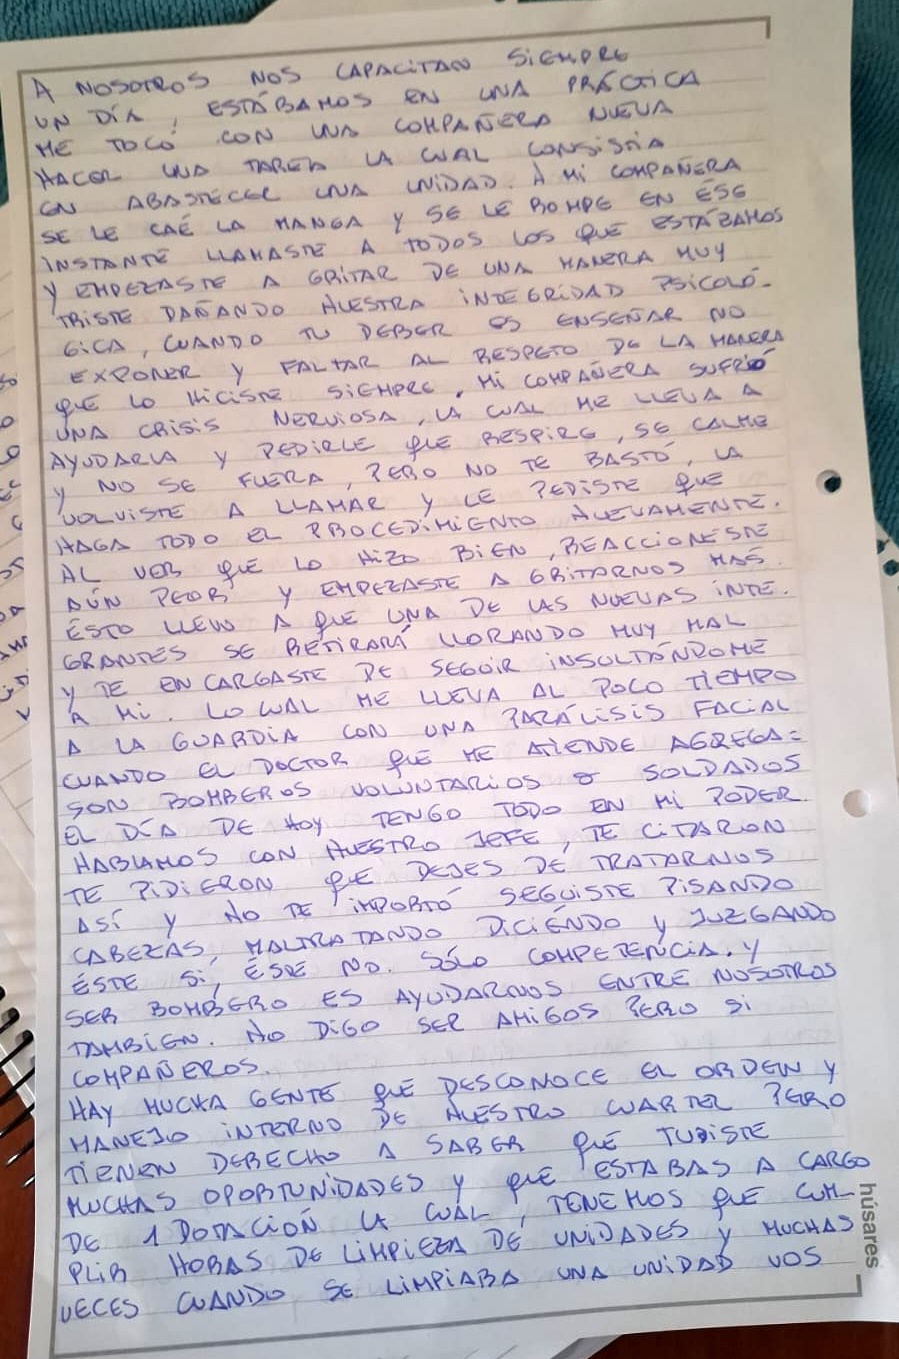 A NOSOTROS NOS CAPACITAN SIEMPRE
UN DÍA, ESTÁBAMOS EN UNA PRÁCTICA
ME TOCÓ CON UNA COMPAÑERA NUEVA
HACER UNA TAREA LA CUAL CONSISTIA
EN ABASTECER UNA UNIDAD. A MI COMPAÑERA
SE LE CAÉ LA MANGA Y SE LE ROMPE EN ÉSE
INSTANTE LLAMASTE A TODOS LOS QUE ESTÁBAMOS
Y EMPEZASTE A GRITAR DE UNA MANERA MUY
TRISTE DAÑANDO NUESTRA INTEGRIDAD PSICOLÓ-
GICA, CUANDO TU DEBER ES ENSEÑAR NO
EXPONER Y FALTAR AL RESPETO DE LA MANERA
QUE LO HICISTE SIEMPRE, MI COMPAÑERA SUFRIÓ
UNA CRISIS NERVIOSA, LA CUAL ME LLEVA A
AYUDARLA Y PEDIRLE QUE RESPIRE, SE CALME
Y NO SE FUERA, PERO NO TE BASTÓ, LA
VOLVISTE A LLAMAR Y LE PEDISTE QUE
HAGA TODO EL PROCEDIMIENTO NUEVAMENTE.
AL VER QUE LO HIZO BIEN, REACCIONESTE
AÚN PEOR Y EMPEZASTE A GRITARNOS MÁS.
ÉSTO LLEVO A QUE UNA DE LAS NUEVAS INTE.
GRANTES SE RETIRARÁ LLORANDO MUY MAL
Y TE ENCARGASTE DE SEGUIR INSULTÁNDOME
A MI. LO CUAL ME LLEVA AL POCO TIEMPO
A LA GUARDIA CON UNA PARÁLISIS FACIAL
CUANDO EL DOCTOR QUE ME ATIENDE AGREGA=
SON BOMBEROS VOLUNTARIOS o SOLDADOS
EL DÍA DE HOY TENGO TODO EN MI PODER.
HABLAMOS CON NUESTRO JEFE, TE CITARON
TE PIDIERON QUE DEJES DE TRATARNOS
ASÍ Y NO TE IMPORTÓ SEGUISTE PISANDO
CABEZAS, MALTRATANDO DICIÉNDO Y JUZGANDO
ÉSTE SI, ÉSE NO. SÓLO COMPETENCIA. Y
SER BOMBERO ES AYUDARNOS ENTRE NOSOTROS
TAMBIÉN. NO DIGO SER AMIGOS PERO SI
COMPAÑEROS.
HAY MUCHA GENTE QUE DESCONOCE EL ORDEN Y
MANEJO INTERNO DE NUESTRO CUARTEL PERO
TIENEN DERECHO A SABER QUE TUBISTE
MUCHAS OPORTUNIDADES Y QUE ESTABAS A CARGO
DE 1 DOTACIÓN LA CUAL, TENEMOS QUE CUM-
PLIR HORAS DE LIMPIEZA DE UNIDADES Y MUCHAS
VECES CUANDO SE LIMPIABA UNA UNIDAD VOS
húsares